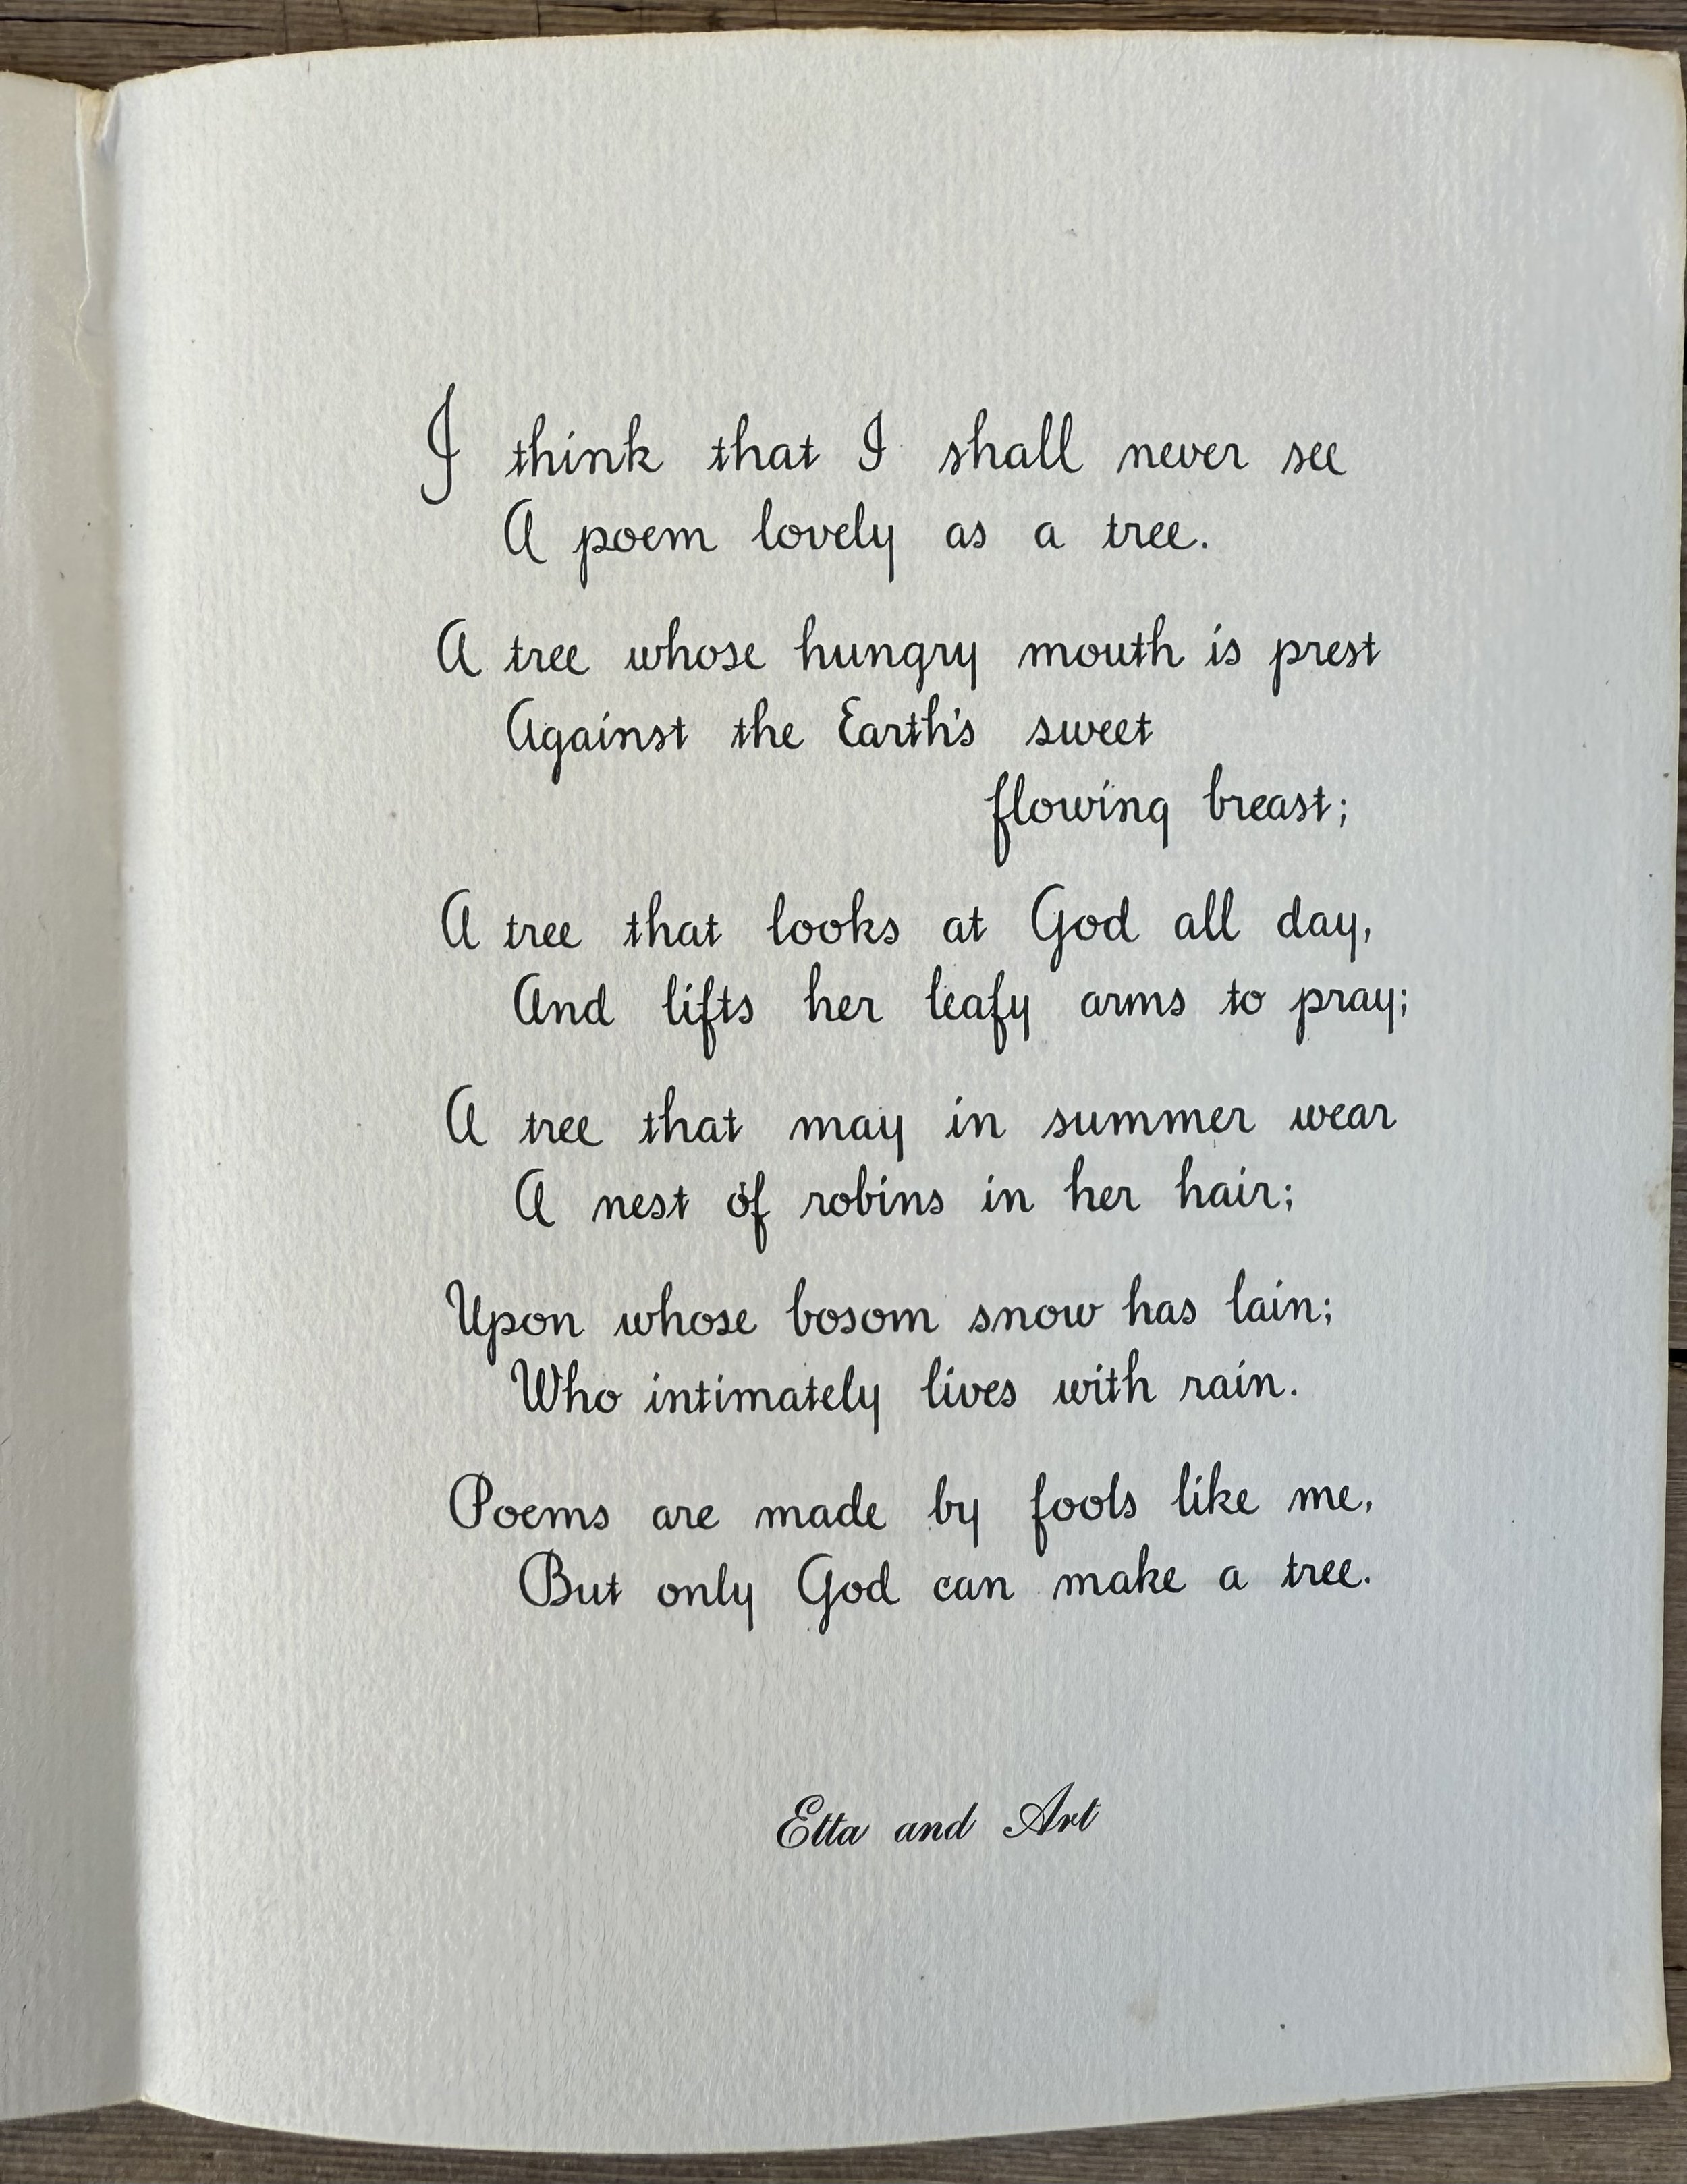 I think that I shall never see
A poem lovely as a tree.
A tree whose hungry mouth is prest
Against the Earth's sweet
flowing breast;
A tree that looks at God all day,
And lifts her leafy arms to pray;
A tree that may in summer wear
A nest of robins in her hair;
Upon whose bosom snow has lain;
Who intimately lives with rain.
Poems are made by fools like me,
But only God can make a tree.
Etta and Art